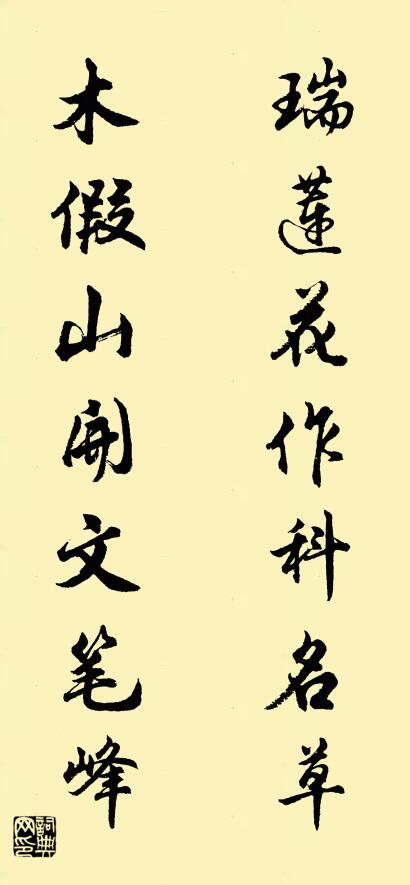 瑞蓮花作科名草
木假山開文笔峰
詞典网印